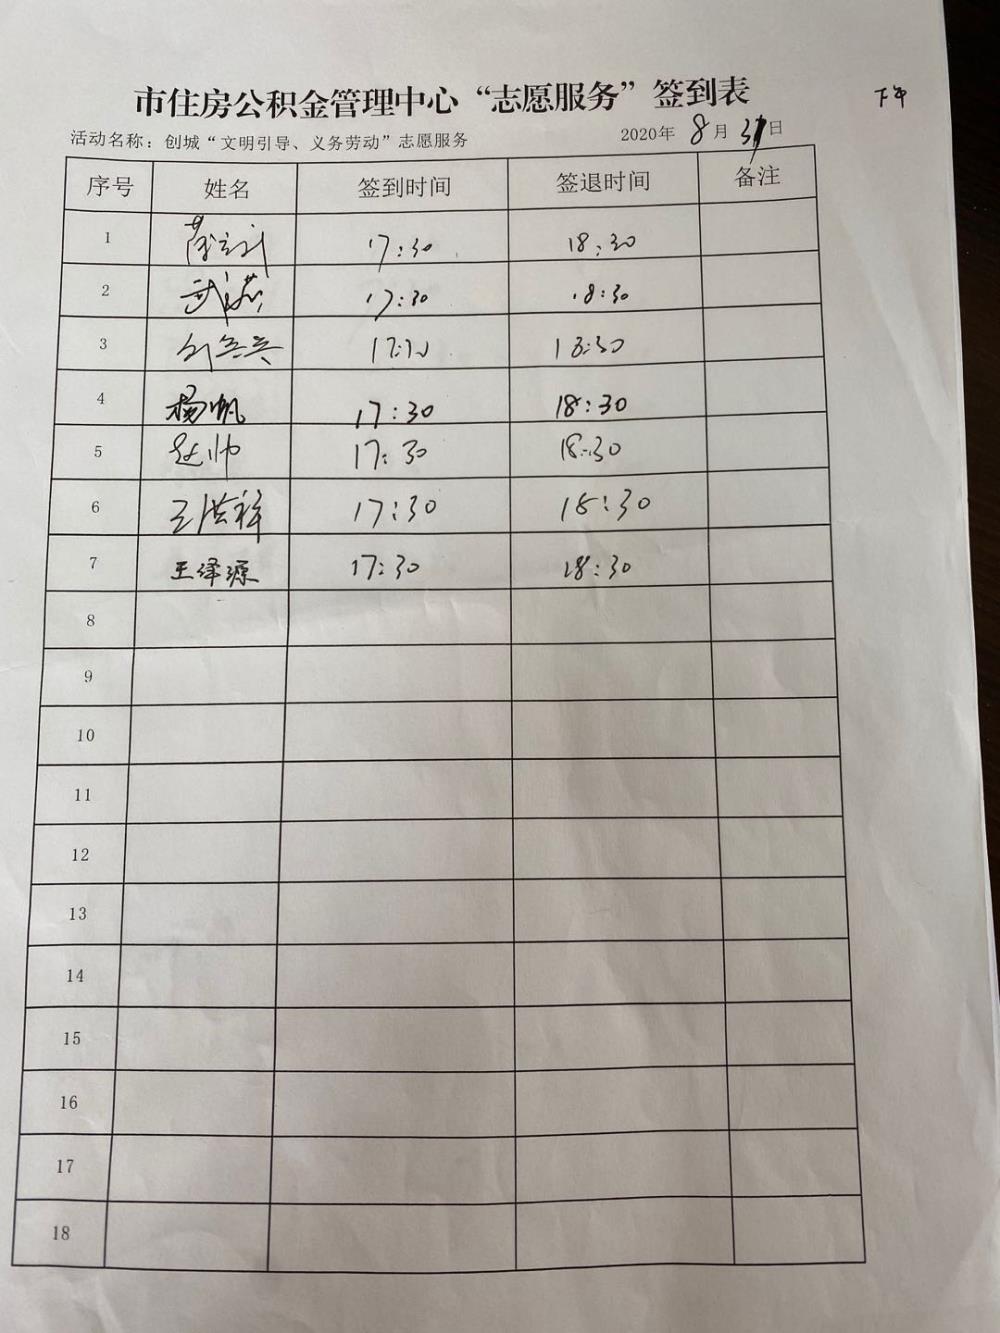 市住房公积金管理中心“志愿服务”签到表
下午
活动名称：创城“文明引导、义务劳动”志愿服务
2020年 8月 31日
序号 姓名 签到时间 签退时间 备注
1 17:30 18:30
2 武 17:30 18:30
3 18:30
4 杨帆 17:30 18:30
5 赵帅 17:30 18:30
6 王洪祥 17:30 18:30
7 王泽源 17:30 18:30
8
9
10
11
12
13
14
15
16
17
18